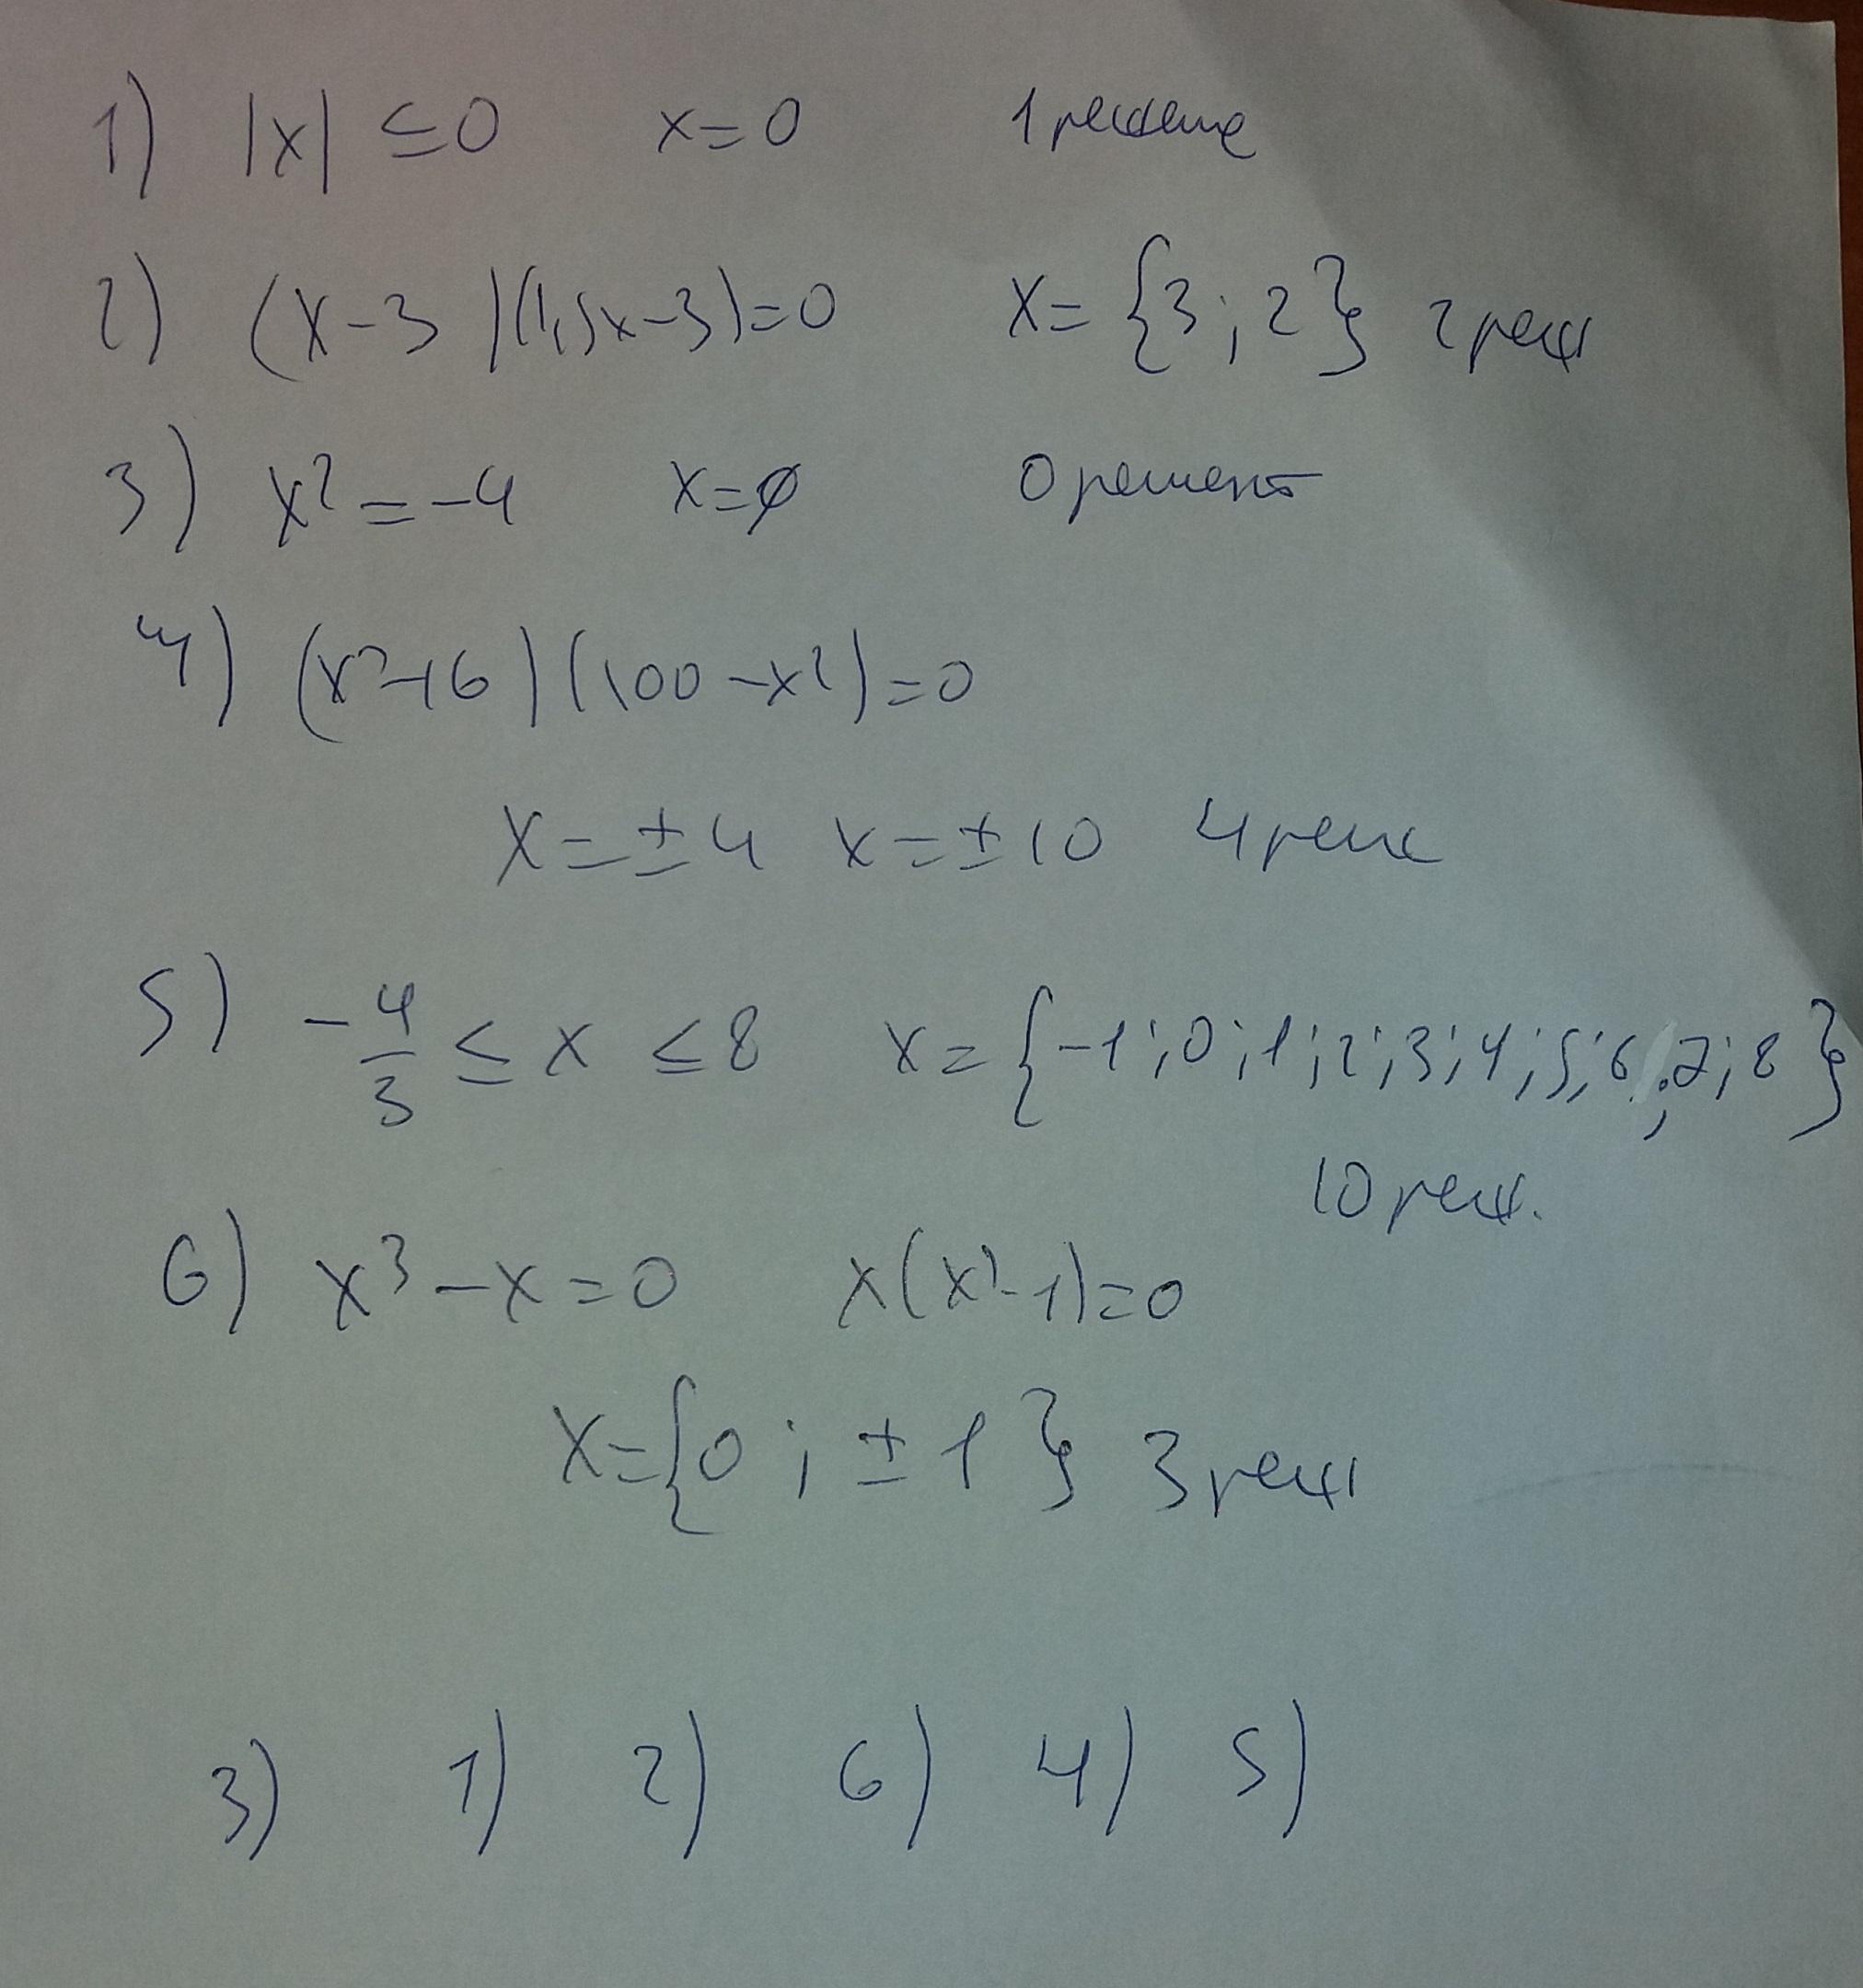 1) |x| ≤ 0 x=0 1 решение
2) (x-3)(1,5x-3)=0 x={3;2} 2 реш
3) x²=-4 x=∅ 0 решений
4) (x²-16)(100-x²)=0
x=±4 x=±10 4 реш
5) -4/3 ≤ x ≤ 8 x={-1;0;1;2;3;4;5;6;7;8}
10 реш.
6) x³-x=0 x(x²-1)=0
x={0;±1} 3 реш
3) 1) 2) 6) 4) 5)